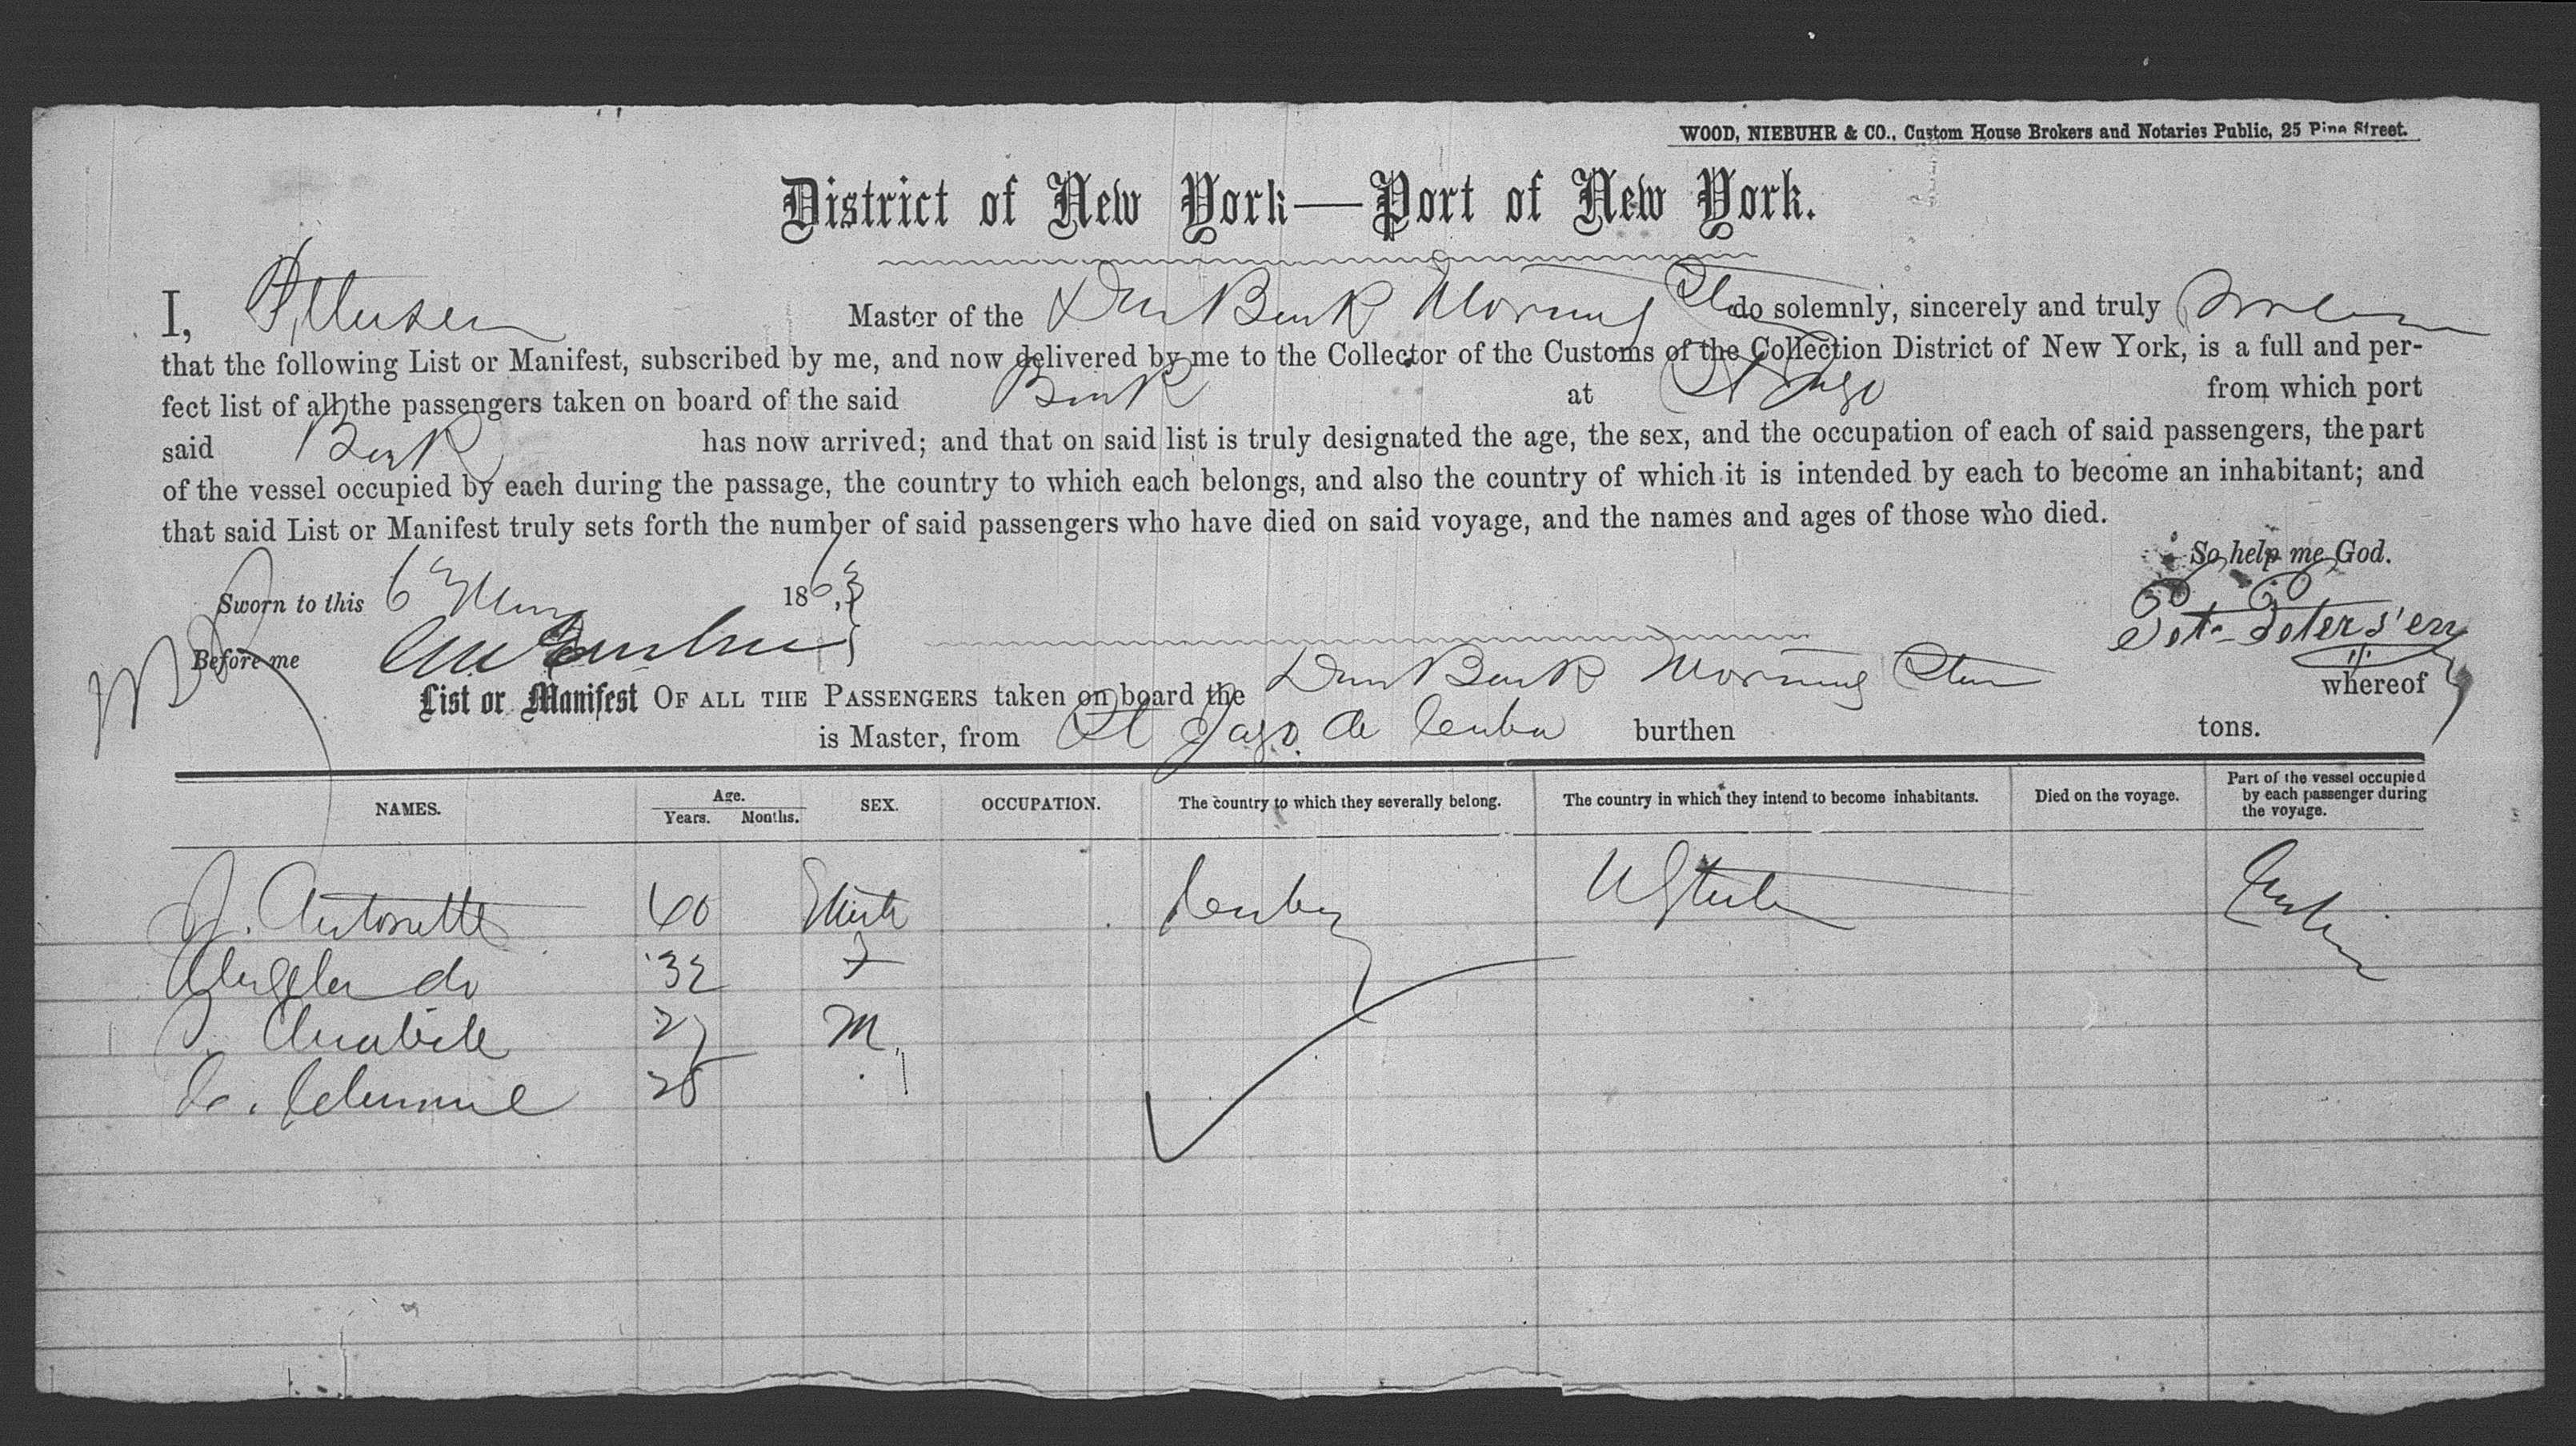 WOOD, NIEBUHR & CO., Custom House Brokers and Notaries Public, 25 Pine Street.
District of New York—Port of New York.
I, P. Petersen Master of the Dan Bark Morning Star do solemnly, sincerely and truly swear
that the following List or Manifest, subscribed by me, and now delivered by me to the Collector of the Customs of the Collection District of New York, is a full and per-
fect list of all the passengers taken on board of the said Bark at St Jago from which port
said Bark has now arrived; and that on said list is truly designated the age, the sex, and the occupation of each of said passengers, the part
of the vessel occupied by each during the passage, the country to which each belongs, and also the country of which it is intended by each to become an inhabitant; and
that said List or Manifest truly sets forth the number of said passengers who have died on said voyage, and the names and ages of those who died.
So help me God.
Sworn to this 6 May 186
Pet. Petersen
Before me
List or Manifest OF ALL THE PASSENGERS taken on board the Dan Bark Morning Star whereof
is Master, from St Jago de Cuba burthen tons.
NAMES. Age. Years. Months. SEX. OCCUPATION. The country to which they severally belong. The country in which they intend to become inhabitants. Died on the voyage. Part of the vessel occupied by each passenger during the voyage.
J. Antoinette 40 Cuba U States Cabin
do 32 F
27 M
28